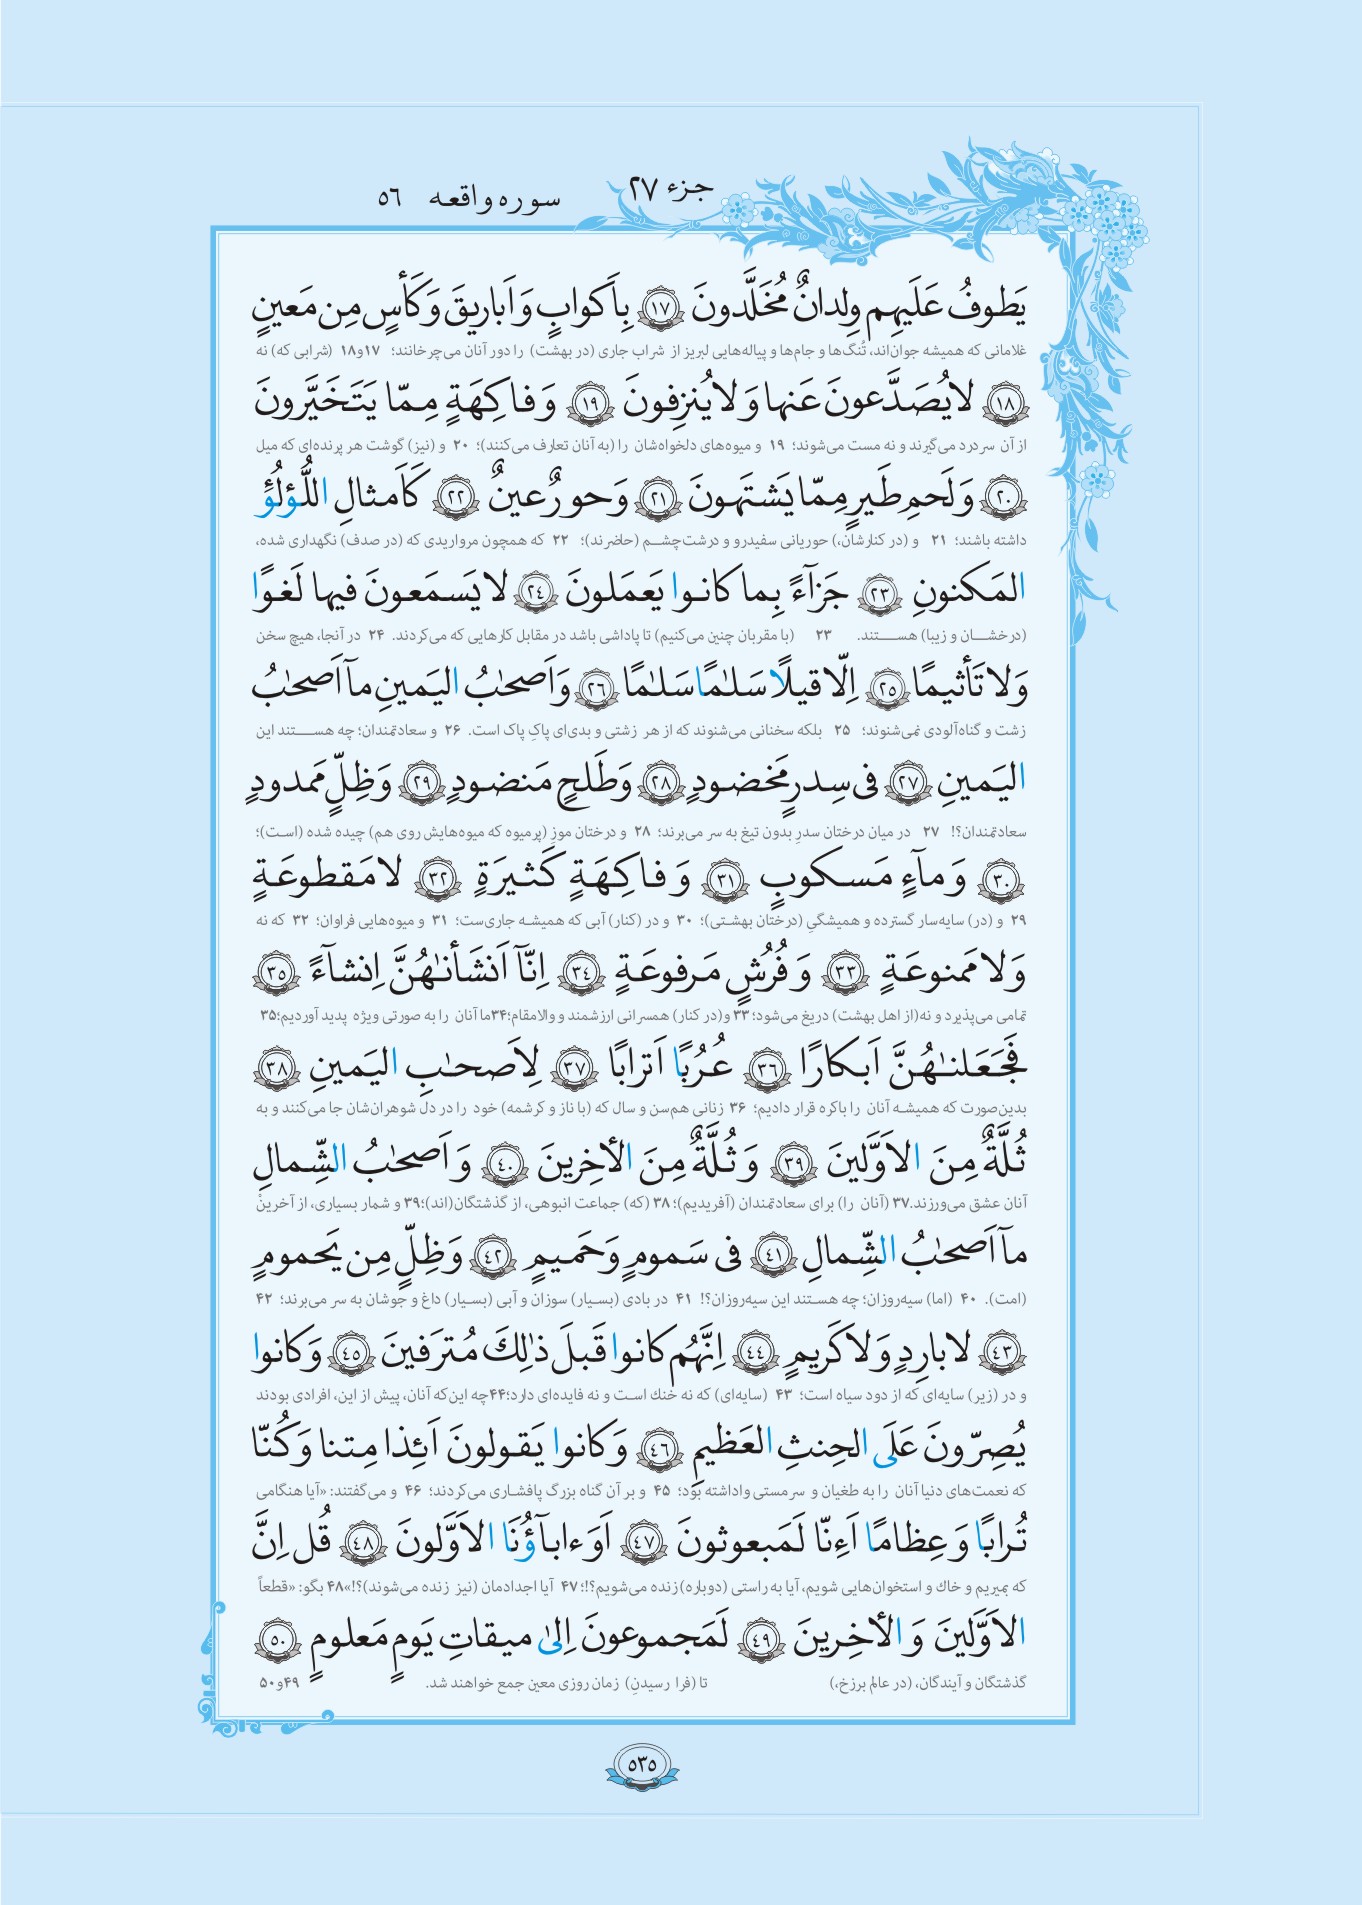 جزء ۲۷
سوره واقعه ۵۶
يَطوفُ عَلَيهِم وِلدانٌ مُخَلَّدونَ ١٧ بِاَكوابٍ وَ اَباريقَ وَ كَأسٍ مِن مَعينٍ
غلامانی که همیشه جوان‌اند، تُنگ‌ها و جام‌ها و پیاله‌هایی لبریز از شراب جاری (در بهشت) را دور آنان می‌چرخانند؛ ۱۷و۱۸ (شرابی که) نه
١٨ لا يُصَدَّعونَ عَنها وَ لا يُنزِفونَ ١٩ وَ فاكِهَةٍ مِمّا يَتَخَيَّرونَ
از آن سردرد می‌گیرند و نه مست می‌شوند؛ ۱۹ و میوه‌های دلخواه‌شان را (به آنان تعارف می‌کنند)؛ ۲۰ و (نیز) گوشت هر پرنده‌ای که میل
٢٠ وَ لَحمِ طَيرٍ مِمّا يَشتَهونَ ٢١ وَ حورٌ عينٌ ٢٢ كَاَمثالِ اللُّؤلُؤِ
داشته باشند؛ ۲۱ و (در کنارشان،) حوریانی سفیدرو و درشت‌چشم (حاضرند)؛ ۲۲ که همچون مرواریدی که (در صدف) نگهداری شده،
المَكنونِ ٢٣ جَزآءً بِما كانوا يَعمَلونَ ٢٤ لا يَسمَعونَ فيها لَغوًا
(درخشان و زیبا) هستند. ۲۳ (با مقربان چنین می‌کنیم) تا پاداشی باشد در مقابل کارهایی که می‌کردند. ۲۴ در آنجا، هیچ سخن
وَ لا تَأثيمًا ٢٥ اِلّا قيلًا سَلٰمًا سَلٰمًا ٢٦ وَ اَصحٰبُ اليَمينِ مآ اَصحٰبُ
زشت و گناه‌آلودی نمی‌شنوند؛ ۲۵ بلکه سخنانی می‌شنوند که از هر زشتی و بدی‌ای پاکِ پاک است. ۲۶ و سعادتمندان؛ چه هستند این
اليَمينِ ٢٧ فى سِدرٍ مَخضودٍ ٢٨ وَ طَلحٍ مَنضودٍ ٢٩ وَ ظِلٍّ مَمدودٍ
سعادتمندان؟! ۲۷ در میان درختان سدرِ بدون تیغ به سر می‌برند؛ ۲۸ و درختان موز (پرمیوه که میوه‌هایش روی هم) چیده شده (است)؛
٣٠ وَ مآءٍ مَسكوبٍ ٣١ وَ فاكِهَةٍ كَثيرَةٍ ٣٢ لا مَقطوعَةٍ
۲۹ و (در) سایه‌سار گسترده و همیشگیِ (درختان بهشتی)؛ ۳۰ و در (کنار) آبی که همیشه جاری‌ست؛ ۳۱ و میوه‌هایی فراوان؛ ۳۲ که نه
وَ لا مَمنوعَةٍ ٣٣ وَ فُرُشٍ مَرفوعَةٍ ٣٤ اِنّآ اَنشَأنٰهُنَّ اِنشآءً ٣٥
تمامی می‌پذیرد و نه (از اهل بهشت) دریغ می‌شود؛ ۳۳ و (در کنار) همسرانی ارزشمند و والامقام؛ ۳۴ ما آنان را به صورتی ویژه پدید آوردیم؛ ۳۵
فَجَعَلنٰهُنَّ اَبكارًا ٣٦ عُرُبًا اَترابًا ٣٧ لِاَصحٰبِ اليَمينِ ٣٨
بدین‌صورت که همیشه آنان را باکره قرار دادیم؛ ۳۶ زنانی هم‌سن و سال که (با ناز و کرشمه) خود را در دل شوهران‌شان جا می‌کنند و به
ثُلَّةٌ مِنَ الاَوَّلينَ ٣٩ وَ ثُلَّةٌ مِنَ الأخِرينَ ٤٠ وَ اَصحٰبُ الشِّمالِ
آنان عشق می‌ورزند. ۳۷ (آنان را) برای سعادتمندان (آفریدیم)؛ ۳۸ (که) جماعت انبوهی، از گذشتگان (اند)؛ ۳۹ و شمار بسیاری، از آخرینْ
مآ اَصحٰبُ الشِّمالِ ٤١ فى سَمومٍ وَ حَميمٍ ٤٢ وَ ظِلٍّ مِن يَحمومٍ
(امت). ۴۰ (اما) سیه‌روزان؛ چه هستند این سیه‌روزان؟! ۴۱ در بادی (بسیار) سوزان و آبی (بسیار) داغ و جوشان به سر می‌برند؛ ۴۲
٤٣ لا بارِدٍ وَ لا كَريمٍ ٤٤ اِنَّهُم كانوا قَبلَ ذٰلِكَ مُترَفينَ ٤٥ وَ كانوا
و در (زیر) سایه‌ای که از دود سیاه است؛ ۴۳ (سایه‌ای) که نه خنک است و نه فایده‌ای دارد؛ ۴۴ چه این‌که آنان، پیش از این، افرادی بودند
يُصِرّونَ عَلَى الحِنثِ العَظيمِ ٤٦ وَ كانوا يَقولونَ اَئِذا مِتنا وَ كُنّا
که نعمت‌های دنیا آنان را به طغیان و سرمستی واداشته بود؛ ۴۵ و بر آن گناه بزرگ پافشاری می‌کردند؛ ۴۶ و می‌گفتند: «آیا هنگامی
تُرابًا وَ عِظامًا اَءِنّا لَمَبعوثونَ ٤٧ اَوَ ءابآؤُنَا الاَوَّلونَ ٤٨ قُل اِنَّ
که بمیریم و خاک و استخوان‌هایی شویم، آیا به راستی (دوباره) زنده می‌شویم؟!؛ ۴۷ آیا اجدادمان (نیز زنده می‌شوند)؟!» ۴۸ بگو: «قطعاً
الاَوَّلينَ وَ الأخِرينَ ٤٩ لَمَجموعونَ اِلىٰ ميقاتِ يَومٍ مَعلومٍ ٥٠
گذشتگان و آیندگان، (در عالم برزخ،) تا (فرا رسیدنِ) زمان روزی معین جمع خواهند شد. ۴۹و۵۰
۵۳۵